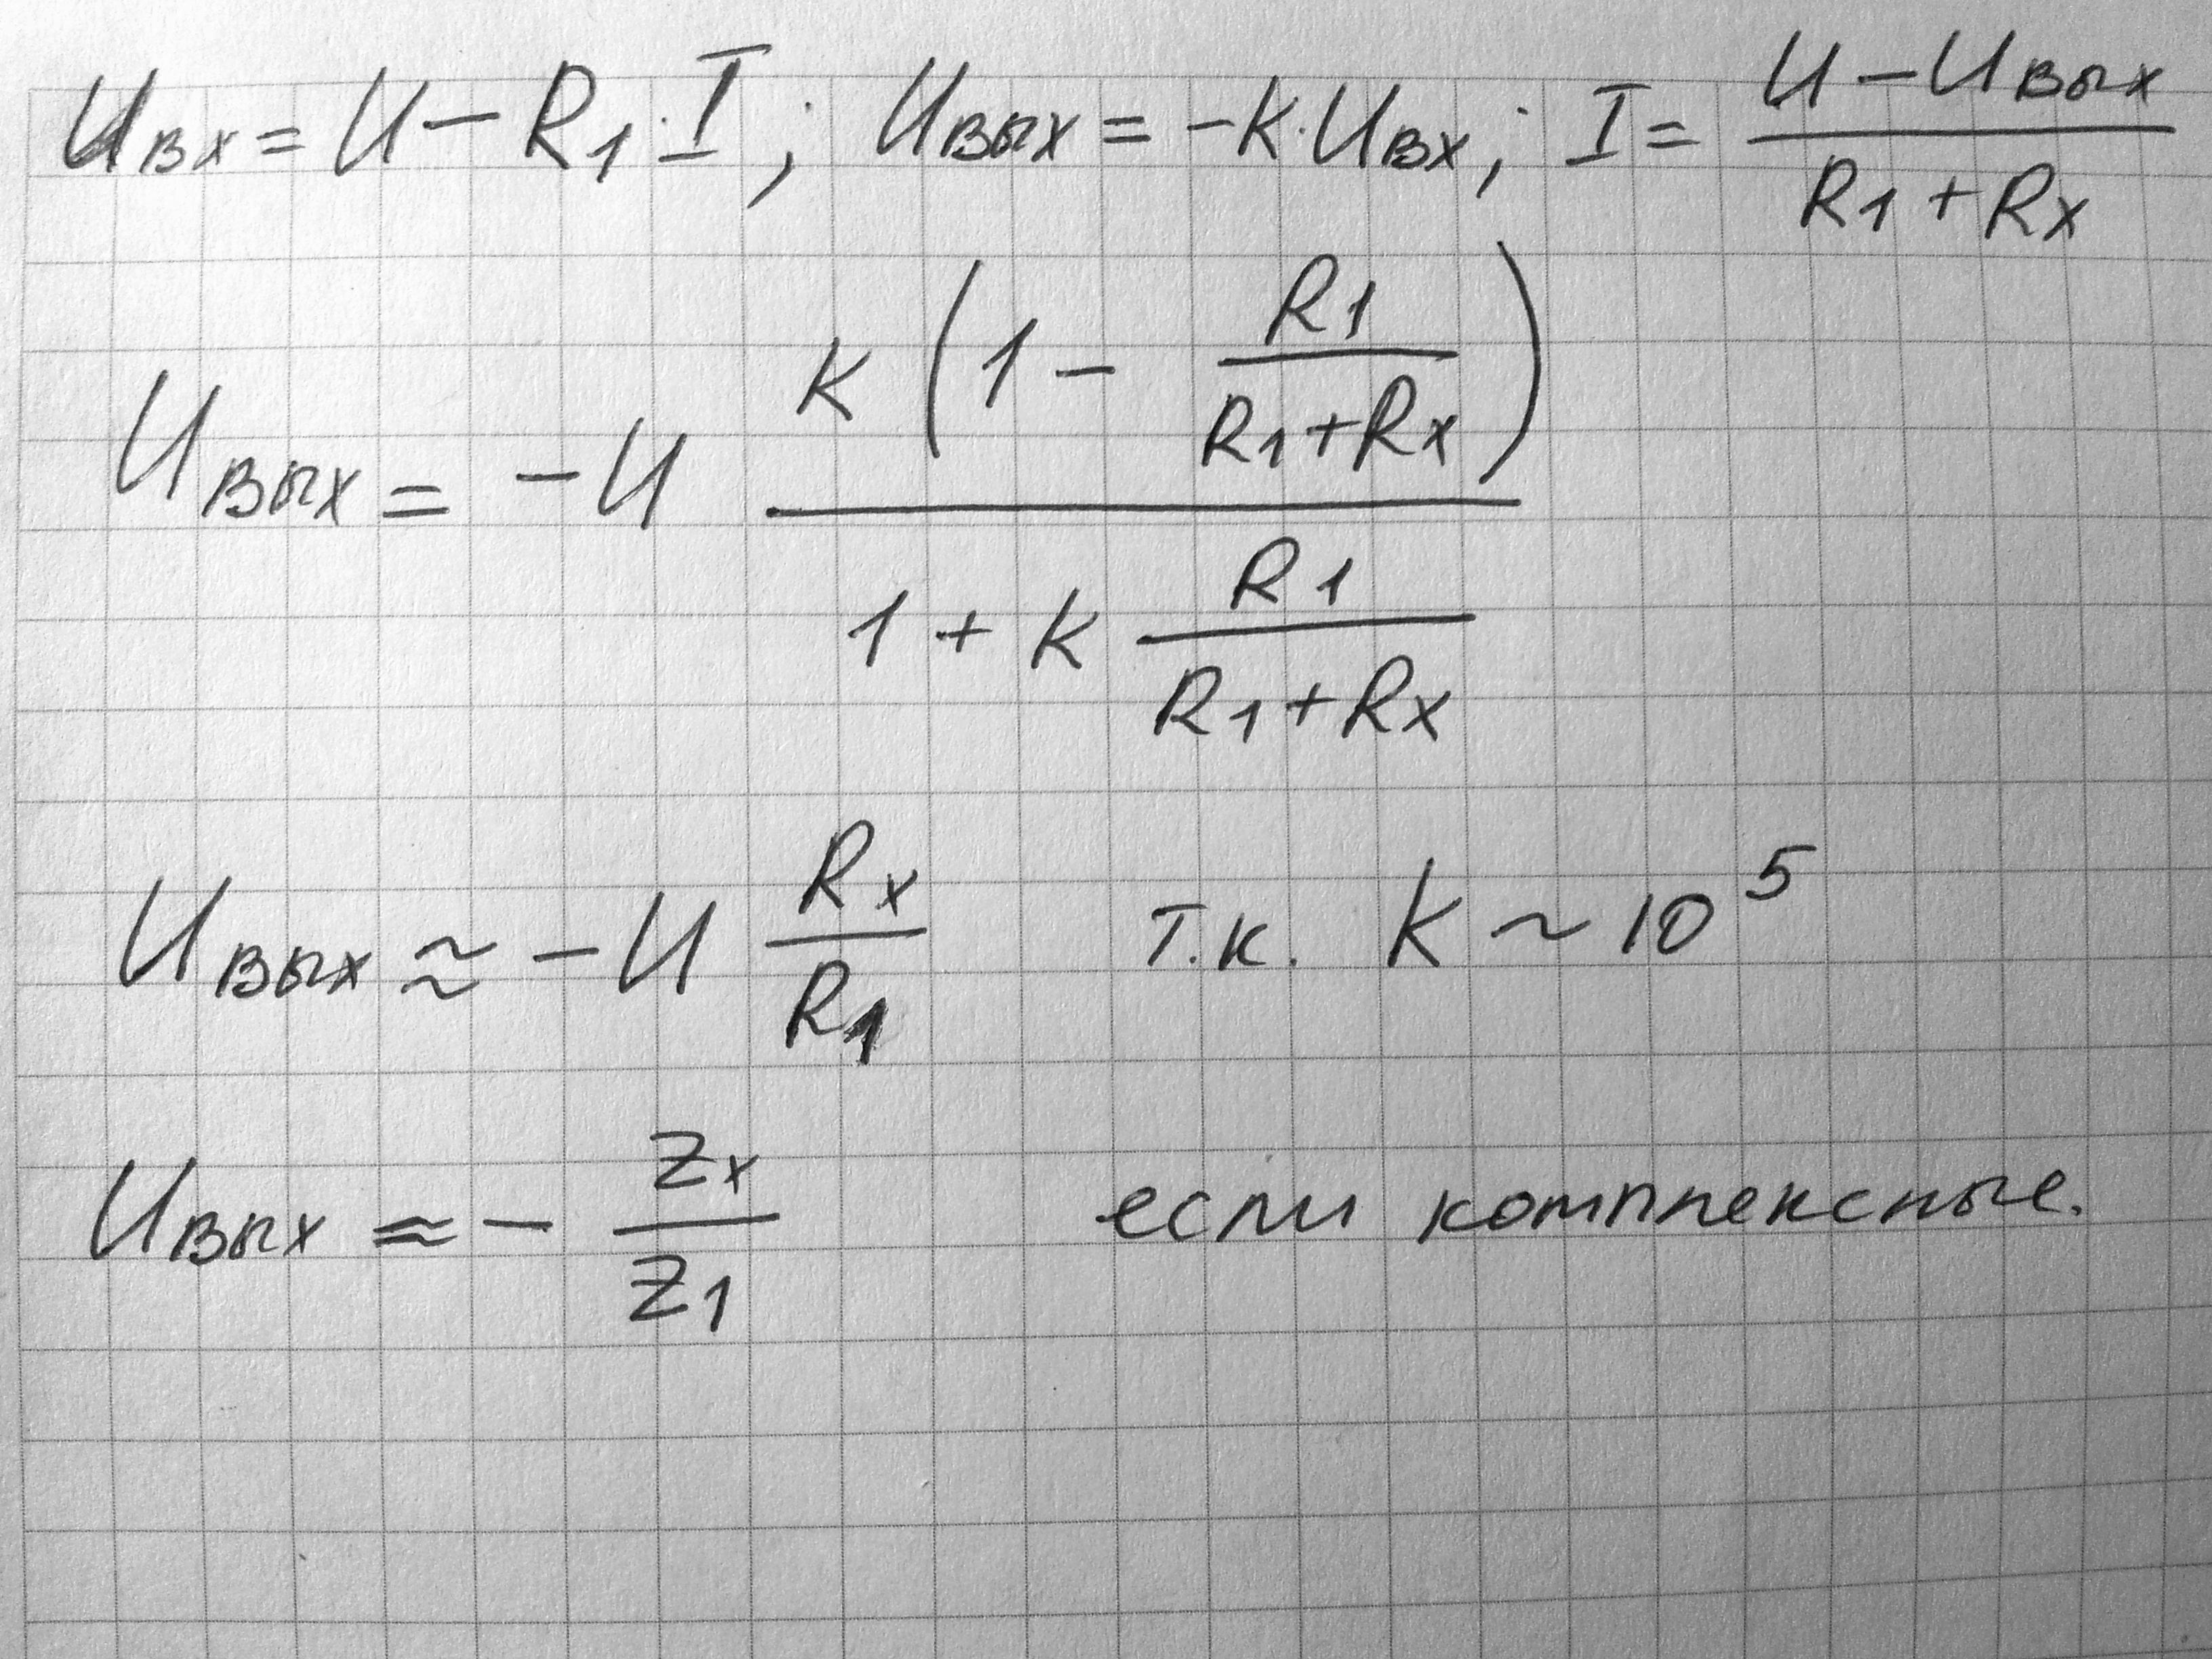 Uвх = U − R1·I; Uвых = −K·Uвх; I = (U − Uвых)/(R1 + Rx)
Uвых = −U K(1 − R1/(R1+Rx))/(1 + K R1/(R1+Rx))
Uвых ≈ −U Rx/R1 т.к. K ~ 10^5
Uвых ≈ − Zx/Z1 если комплексные.